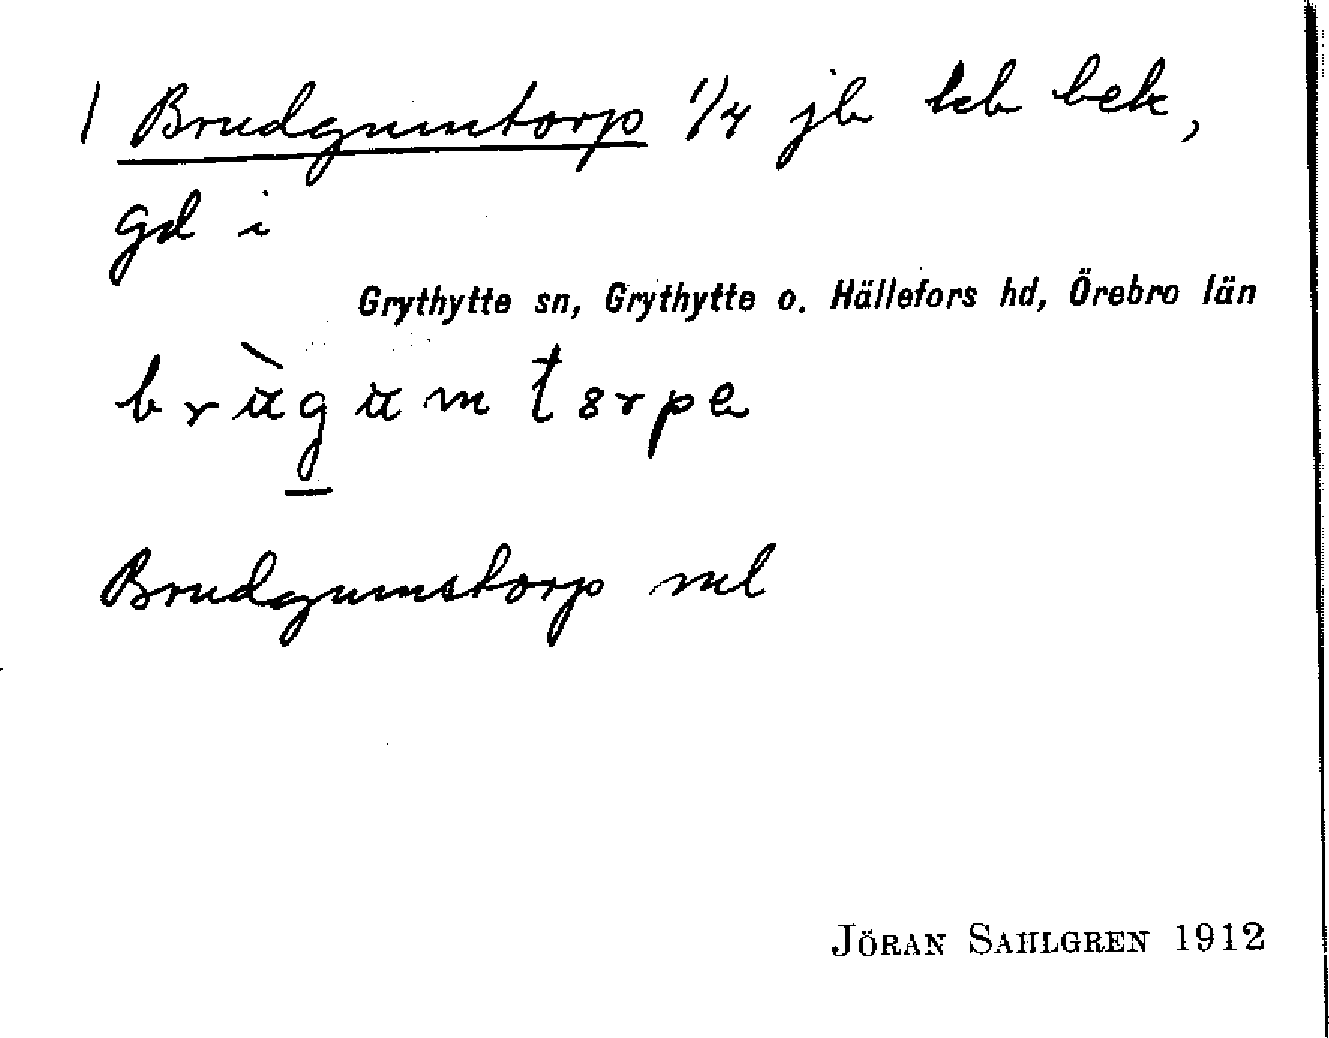 1 Brudgumtorp 1/4 jb kb bek,
gd i
Grythytte sn, Grythytte o. Hällefors hd, Örebro län
brùgumtorpa
Brudgumstorp ml
JÖRAN SAHLGREN 1912